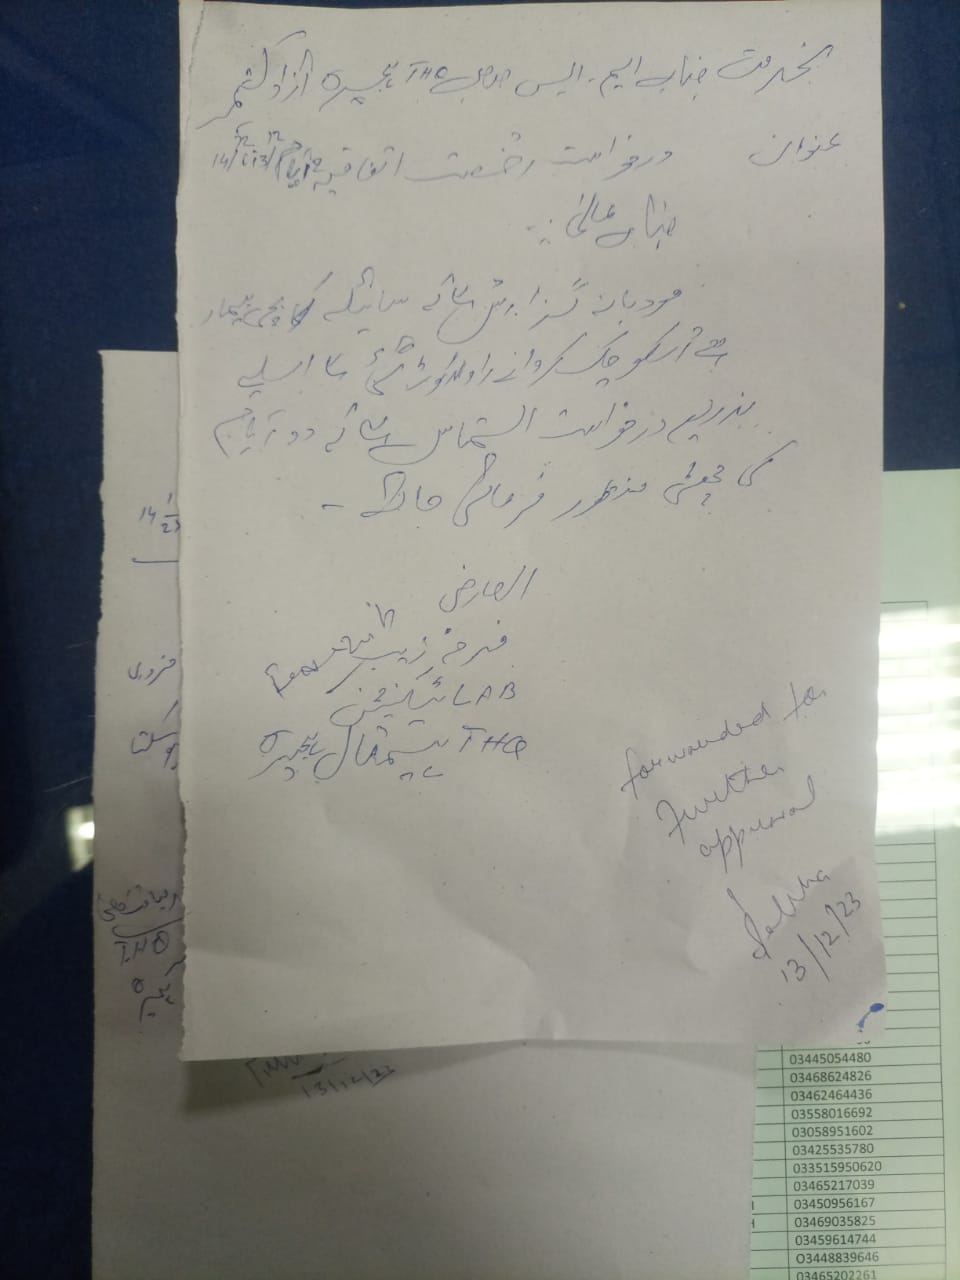 بخدمت جناب ایم۔ایس صاحب THQ ہجیرہ آزاد کشمیر
عنوان درخواست رخصت اتفاقیہ
جناب عالی:۔
مودبانہ گزارش ہے کہ سائیلہ کا بچی بیمار
ہے اسکو چیک کروانے راولاکوٹ ہے اسلیے
بذریعہ درخواست التماس ہے کہ دو آیام
کی چھٹی منظور فرمائی جائے۔
العارض
فرحا زیب
LAB ٹیکنیشن
THQ ہسپتال ہجیرہ
forwarded for
Further
approval
13/12/23
14
ضروری
THQ
13/12/23
03445054480
03468624826
03462464436
03558016692
03058951602
03425535780
033515950620
03465217039
03450956167
03469035825
03459614744
O3448839646
03465202261